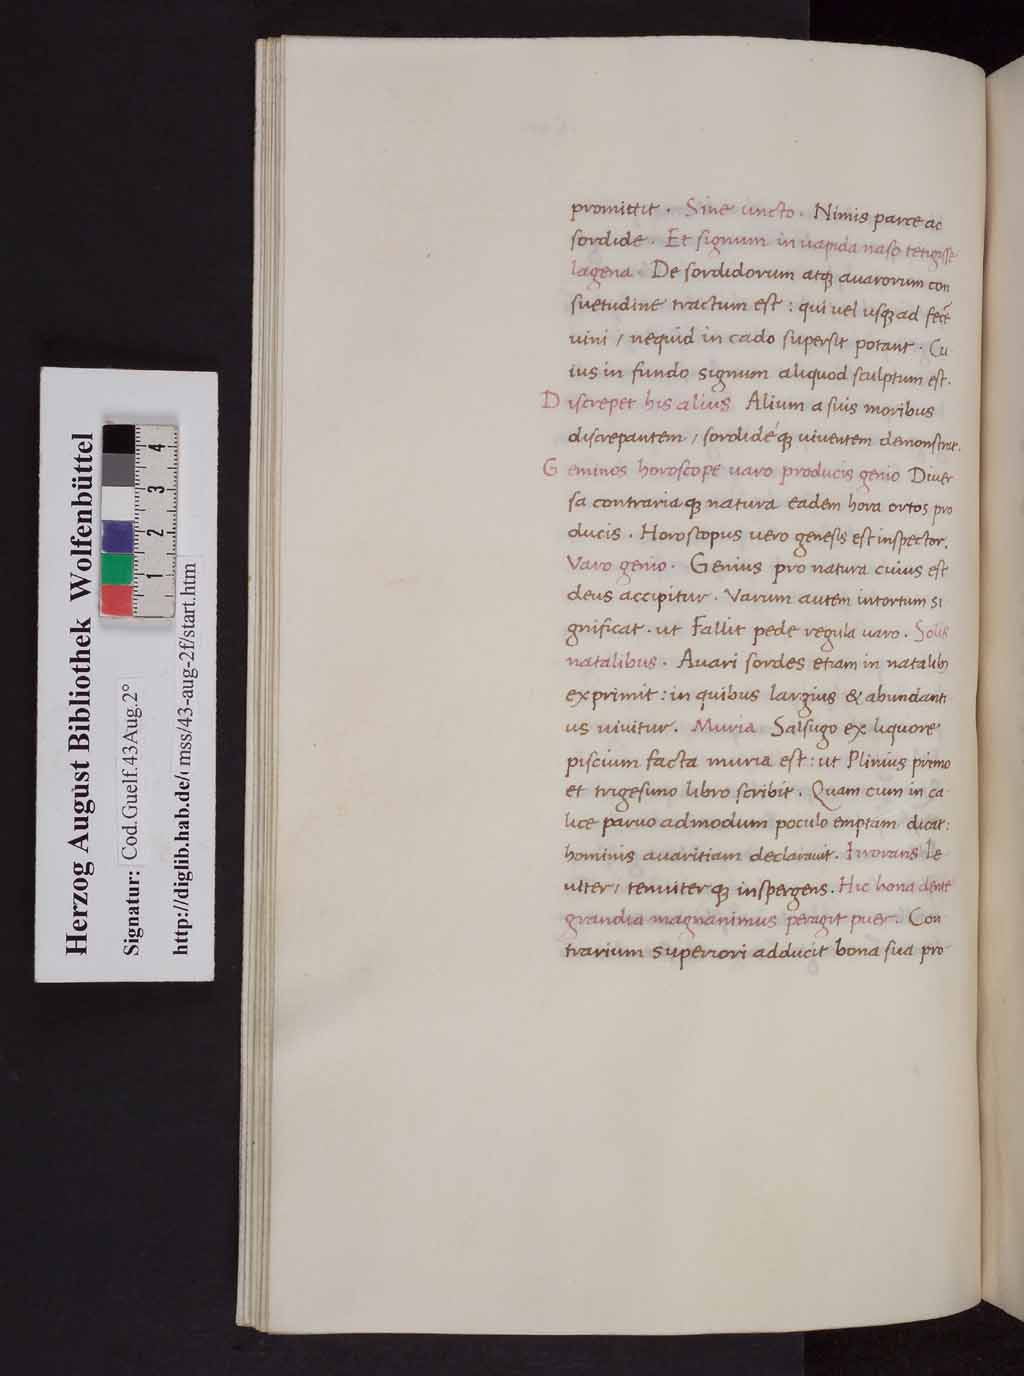 promittit. Sine uncto. Nimis parce ac
sordide. Et signum in uapida naso tetigisse
lagena. De sordidorum atq; auarorum con
suetudine tractum est: qui uel usq; ad fecē
uini / nequid in cado supersit potant. Cu
ius in fundo signum aliquod sculptum est.
Discrepet his alius Alium a suis moribus
discrepantem / sordideq; uiuentem demonstrat.
Geminos horoscope uaro producis genio Diuer
sa contrariaq; natura eadem hora ortos pro
ducis. Horoscopus uero genesis est inspector.
Varo genio. Genius pro natura cuius est
deus accipitur. Varum autem intortum si
gnificat. ut Fallit pede regula uaro. Solis
natalibus. Auari sordes etiam in natalib;
exprimit: in quibus largius & abundanti
us uiuitur. Muria Salsugo ex liquore
piscium facta muria est: ut Plinius primo
et trigesimo libro scribit. Quam cum in ca
lice paruo admodum poculo emptam dicat:
hominis auaritiam declarauit. Inrorans Le
uiter / tenuiterq; inspergens. Hic bona dente
grandia magnanimus peragit puer. Con
trarium superiori adducit bona sua pro
Herzog August Bibliothek Wolfenbüttel
Signatur: Cod.Guelf.43Aug.2°
http://diglib.hab.de/mss/43-aug-2f/start.htm
1 2 3 4